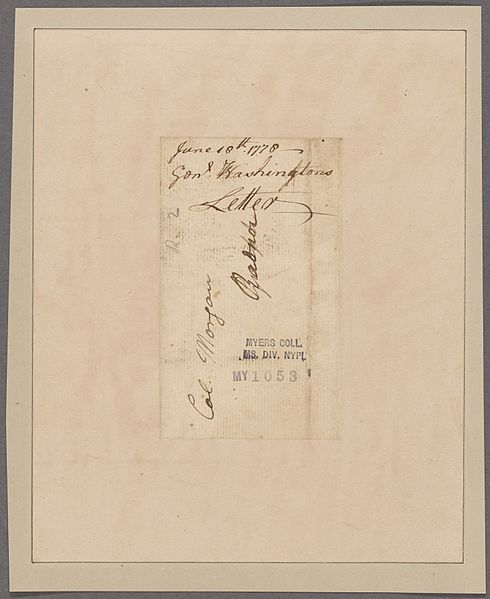 June 18th. 1778
Genl. Washingtons
Letter
Radnor
Col. Morgan
R. 2
MYERS COLL.
MS. DIV. NYPL
MY 1053